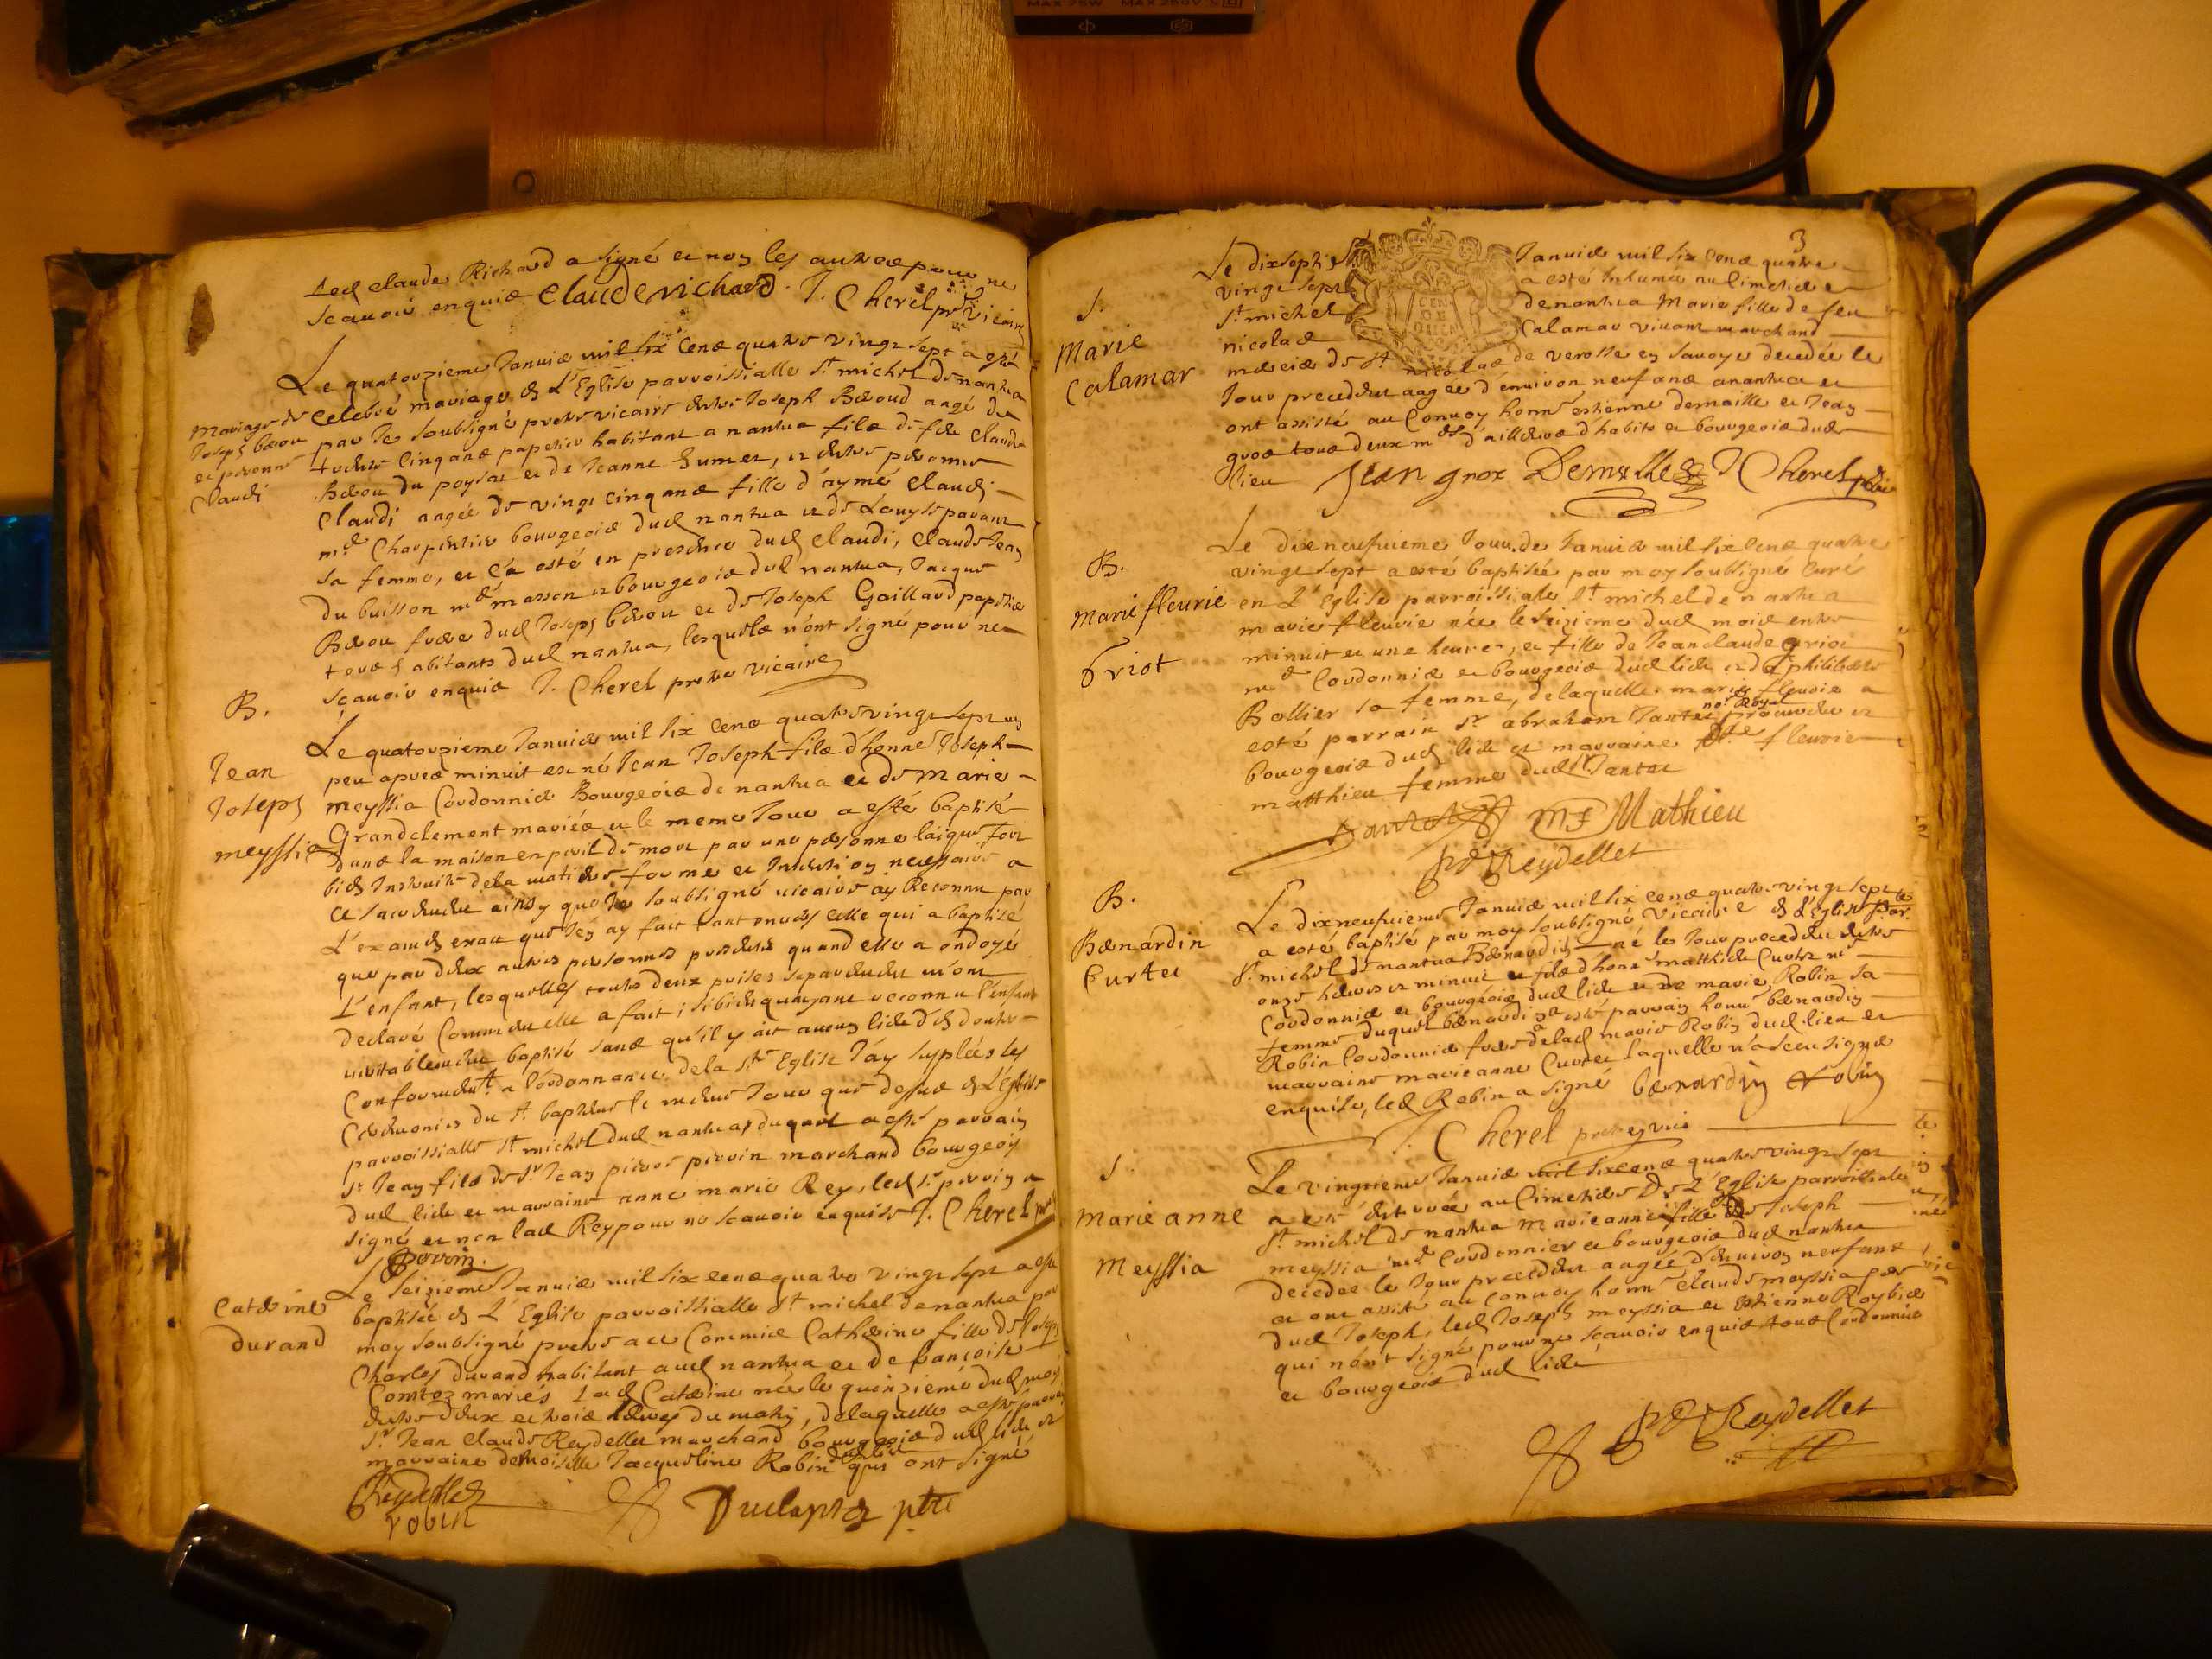 Led Claude Richard a signé et non les autres pour ne
scauoir enquis Claude richard. J. Cherel ptre Vicaire
Mariage de
Joseph bérou
et peronne
Claudi
Le quatorzieme Januier mil six cens quatre vingt sept a esté
celebré mariage en L'Eglise parroissialle St michel de nantua
par Je soubsigné pretre vicaire entre Joseph Béroud aagé de
cinq ans papetier habitant a nantua fils de feu Claude
Bérou du poysat et de Jeanne humet, et entre peronne
Claudi aagée de vingt cinq ans fille d'aymé Claudi
md Charpentier bourgeois dud nantua et de Louyse
sa femme, et ça esté en presence dud Claudi, Claude Jean
du buisson md masson et bourgeois dud nantua, Jacques
Bérou frere dud Joseph bérou et de Joseph Gaillard papetier
tous habitants dud nantua, lesquels n'ont signé pour ne
sçauoir enquis J. Cherel pretre vicaire
B.
Jean
Joseph
meyssia
Le quatorzieme Januier mil six cens quatre vingt sept un
peu apres minuit est né Jean Joseph fils d'honne Joseph
meyssia Cordonnier Bourgeois de nantua et de Marie
Grandclement mariés et le meme Jour a esté baptisé
dans la maison en peril de mort par une personne laique fort
bien Instruite de la matiere forme et Intention necessaire a
ce sacrement ainsy que Je soubsigné vicaire ay Reconnu par
L'examen exact que J'en ay fait tant enuers celle qui a baptisé
que par deux autres personnes presentes quand elle a ondoyé
L'enfant, lesquelles toutes deux prises separement m'ont
declaré Comment elle a fait; si bien qu'ayant reconnu l'enfant
veritablement baptisé sans qu'il y ait aucun lieu d'en douter
Conformemt a l'ordonnance de la Ste Eglise J'ay supplées les
Ceremonies du St bapteme le meme Jour que dessus en L'Eglise
parroissialle St michel dud nantua, duquel a esté parrain
Sr Jean fils de Sr Jean pierre perrin marchand bourgeois
dud lieu et marraine anne marie Rey, led Sr perrin a
signé et non lad Rey pour ne scauoir enquise J. Cherel ptre
Perrin.
Catérine
durand
Le seizieme Januier mil six cens quatre vingt sept a esté
baptisée en L'Eglise parroissialle St michel de nantua par
moy soubsigné pretre a ce Commis Cathérine fille de Joseph
Charles durand habitant aud nantua et de françoise
Comtez mariés Lad Catérine née le quinzieme dud mois
entre deux et trois heures du matin, de laquelle a esté parrain
Sr Jean Claude Reydellet marchand bourgeois dud lieu et
marraine demoiselle Jacqueline Robin dud lieu qui ont signé
Reydellet
robin
ptre
3
S.
Marie
Calamar
Le dixseptie Januier mil six cens quatre
vingt sept a esté Inhumée au Cimetiere
St michel de nantua Marie fille de feu
nicolas Calamar viuant marchand
mercier de St nicolas de verosse en sauoye decedée le
Jour precedent aagée d'enuiron neuf ans a nantua et
ont assisté au Conuoy honne estienne demaille et Jean
gros tous deux mds tailleurs d'habits et bourgeois dud
lieu Jean gros Demaille J Cherel
B.
Marie fleurie
Griot
Le dixneufuieme Jour de Januier mil six cens quatre
vingt sept a esté baptisée par moy soubsigné Curé
en L'Eglise parroissiale St michel de nantua
marie fleurie née le seizieme dud mois entre
minuit et une heure, et fille de Jean claude griot
md Cordonnier et bourgeois dud lieu et de philiberte
Bollier sa femme, de laquelle marie fleurie a
esté parrain Sr abraham Jantet not. Royal procureur et
bourgeois dud lieu et marraine fleurie
matthieu femme dud Sr Jantet
Jantet MF Mathieu
Reydellet
B.
Bernardin
Curtet
Le dixneufuieme Januier mil six cens quatre vingt sept
a esté baptisé par moy soubsigné Vicaire en L'Eglise par.le
St michel de nantua Bernardin né le Jour precedent entre
onze heures et minuit et fils d'honne matthieu Curtet md
Cordonnier et bourgeois dud lieu et de marie Robin sa
femme duquel bernardin a esté parrain honne bernardin
Robin Cordonnier frere de lad marie Robin dud lieu et
marraine marie anne Curtet laquelle n'a sceu signer
enquise, led Robin a signé bernardin robin
J. Cherel pretre vice
S.
Marie anne
Meyssia
Le vingtieme Januier mil six cens quatre vingt sept
a esté enterrée au Cimetiere de L'Eglise parroissiale
St michel de nantua marie anne fille de Joseph
meyssia md Cordonnier et bourgeois dud nantua
decedée le Jour precedent aagée d'enuiron neuf ans
et ont assisté au conuoy honne Claude meyssia
dud Joseph, led Joseph meyssia et Estienne Roybier
qui n'ont signé pour ne sçauoir enquis tous Cordonniers
et bourgeois dud lieu
Reydellet